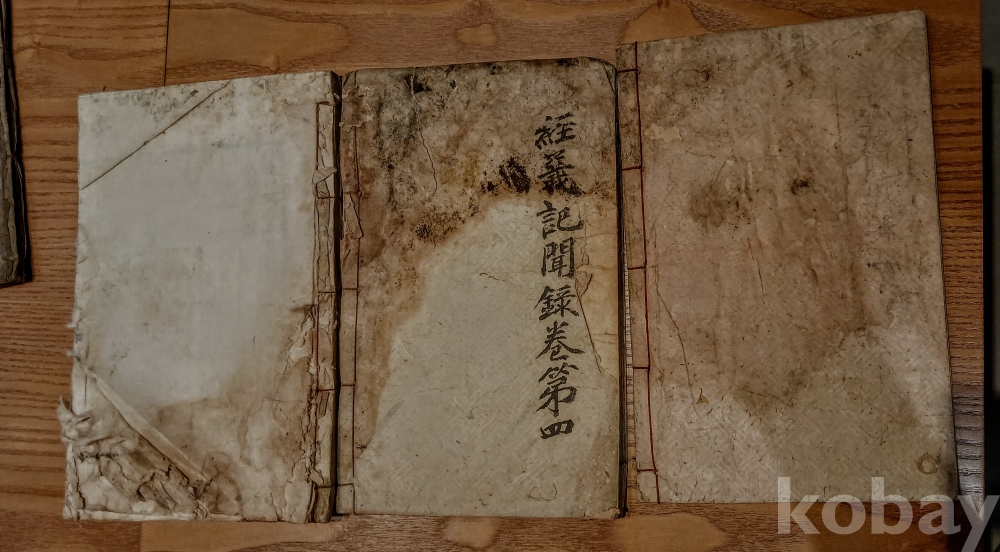 經義記聞録卷第四
kobay